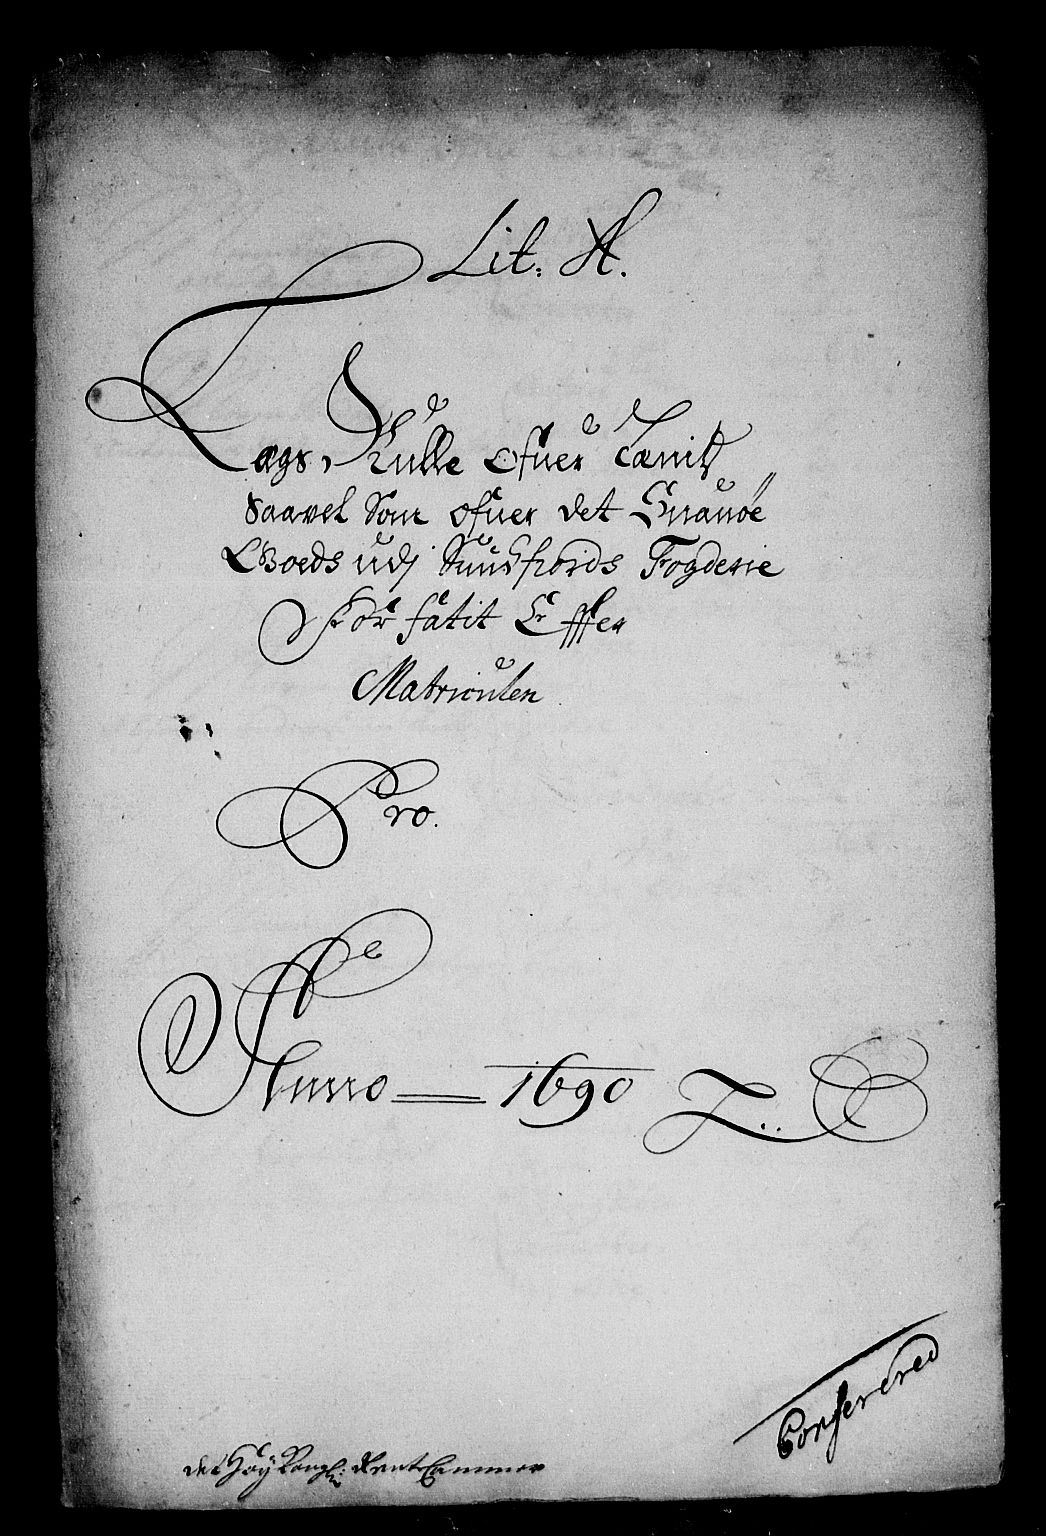 Lit: A.
Lægs, Rulle ofuer Camitz
saavel Som ofuer det Suanøe
Goeds udj Sundfiords Fogderie
For fatit Efter
Matriculen
Pro.
Anno 1690
Conferered
det Høy Kongl: Rente Cammer